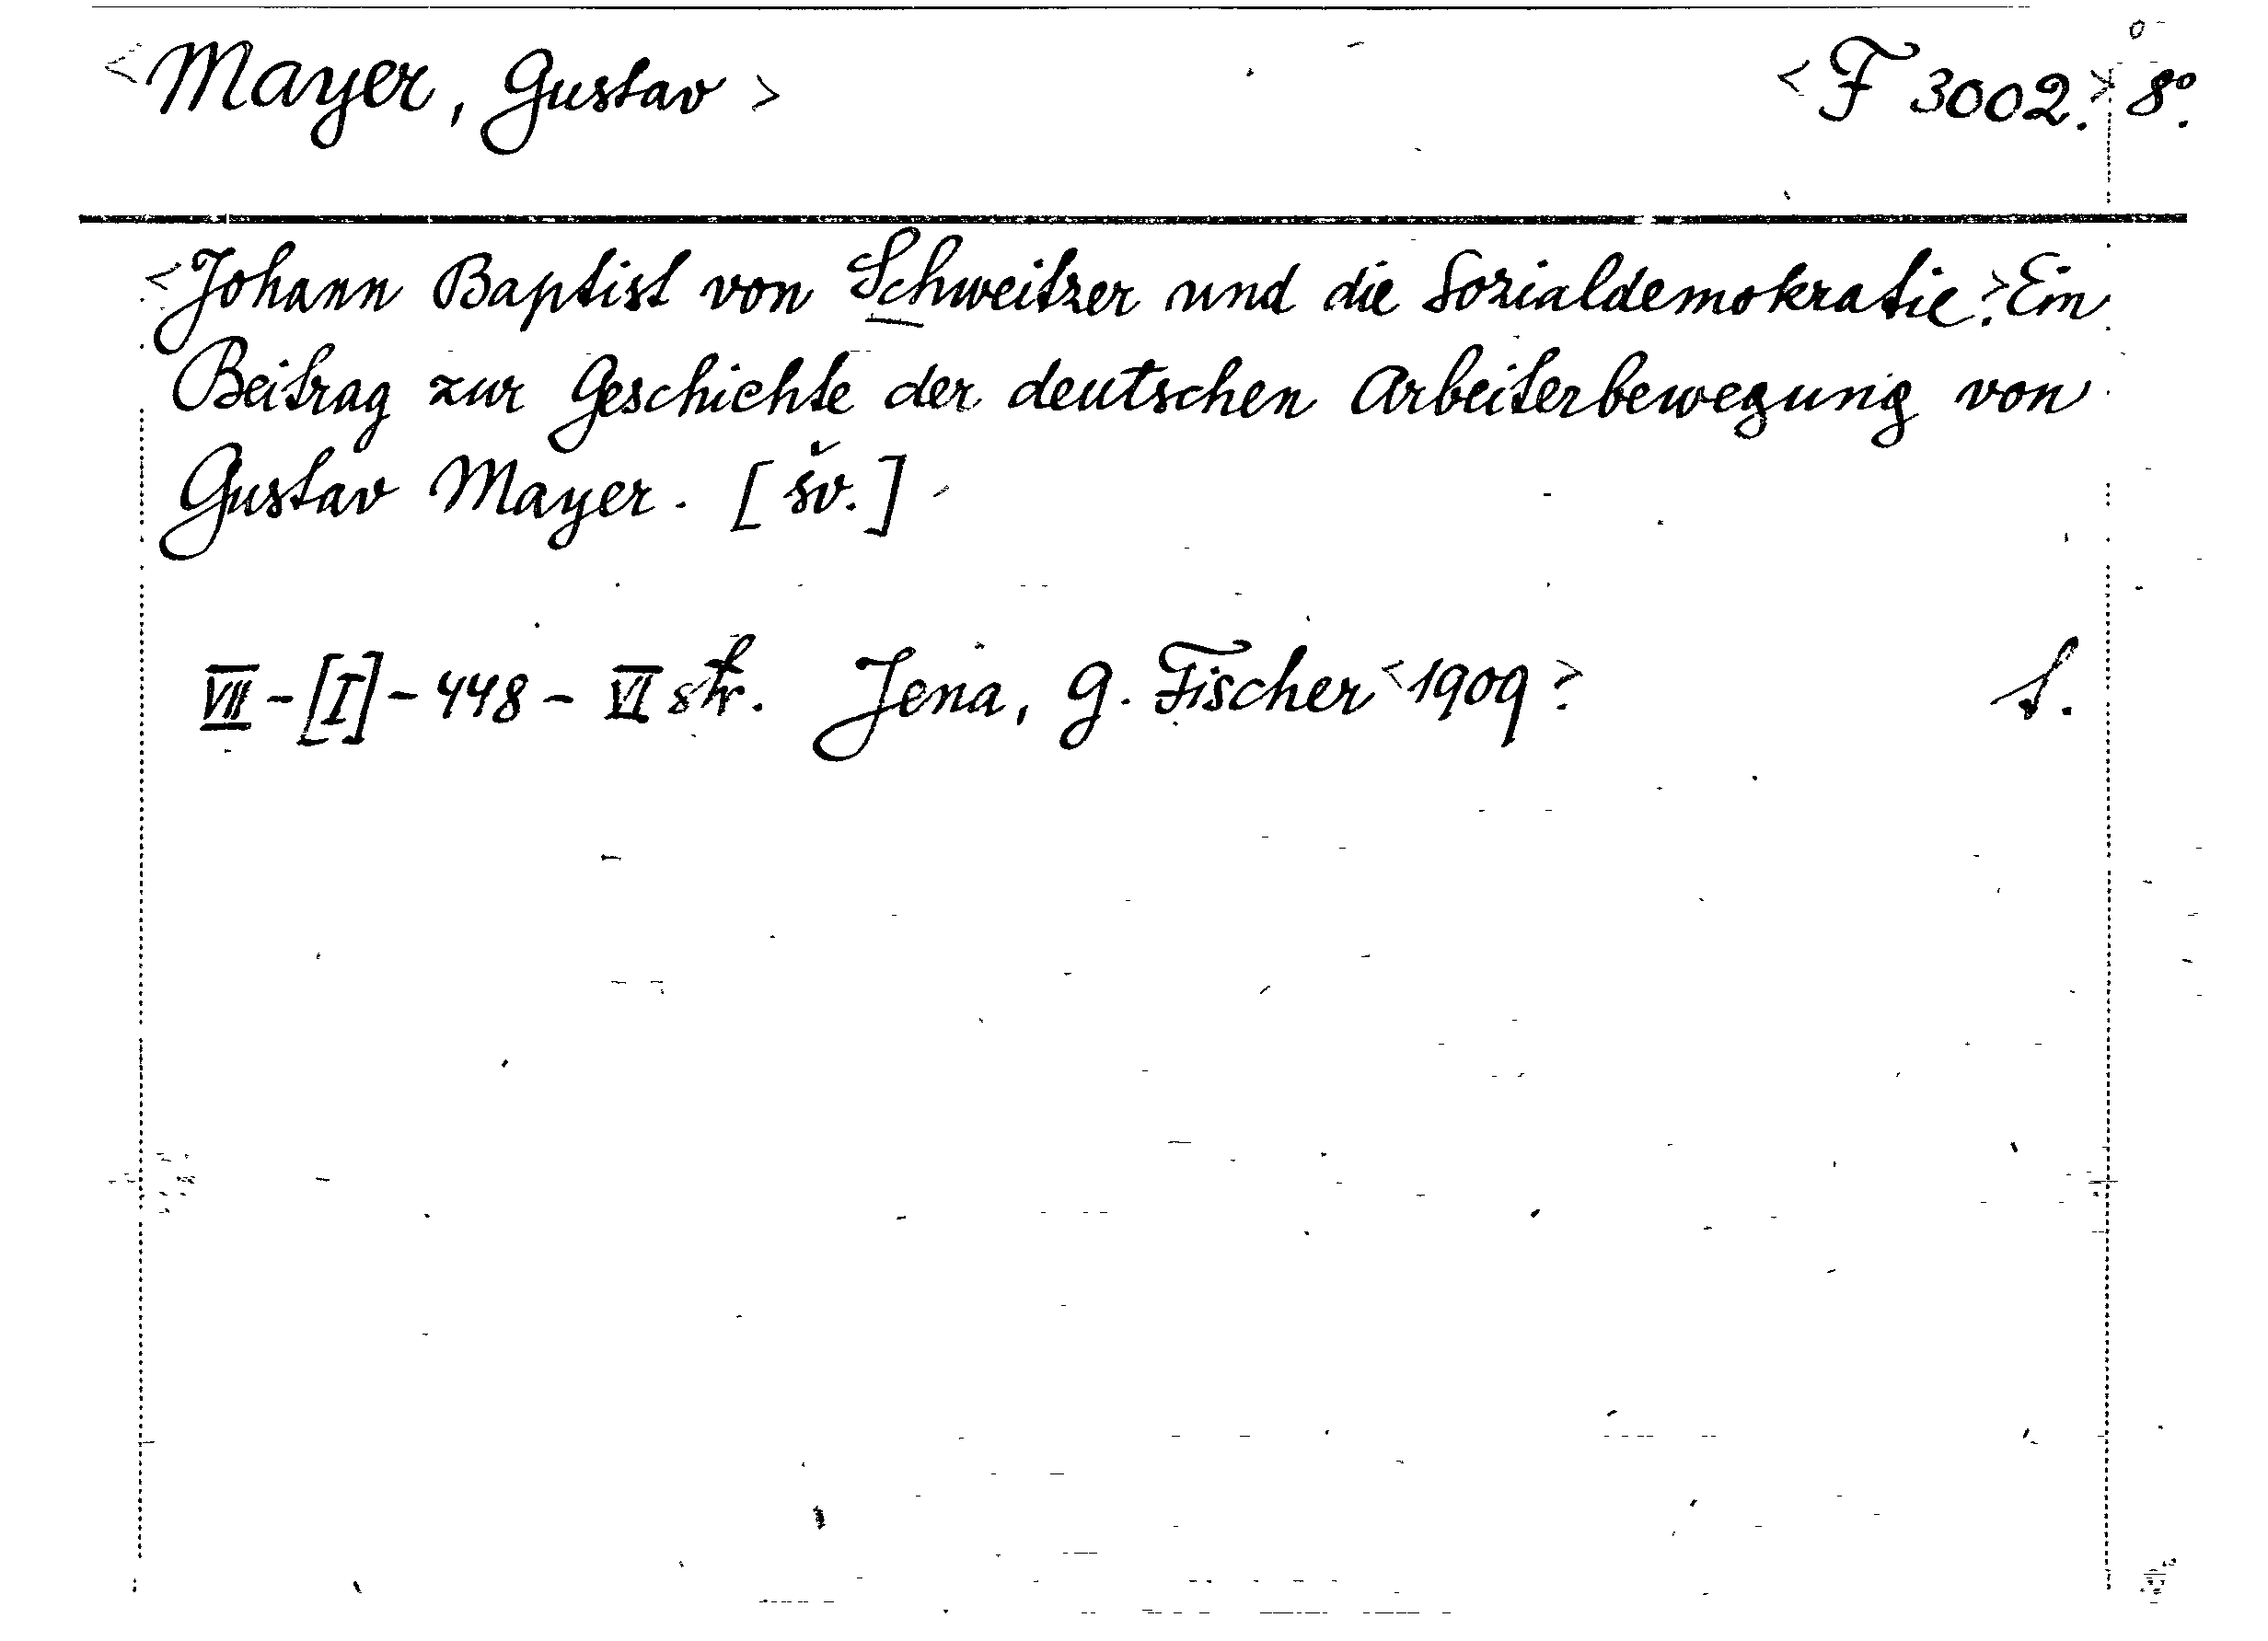 <Mayer, Gustav>
<F 3002.> 8°.
<Johann Baptist von Schweitzer und die Sozialdemokratie.> Ein
Beitrag zur Geschichte der deutschen Arbeiterbewegung von
Gustav Mayer. [šv.]
VII-[I]-448-VI str. Jena, G. Fischer <1909.>